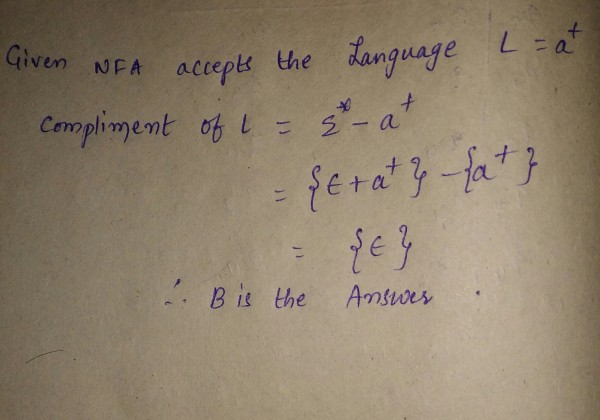 Given NFA accepts the Language L = a⁺
Compliment of L = Σ* - a⁺
= {ϵ + a⁺} - {a⁺}
= {ϵ}
∴ B is the Answer .